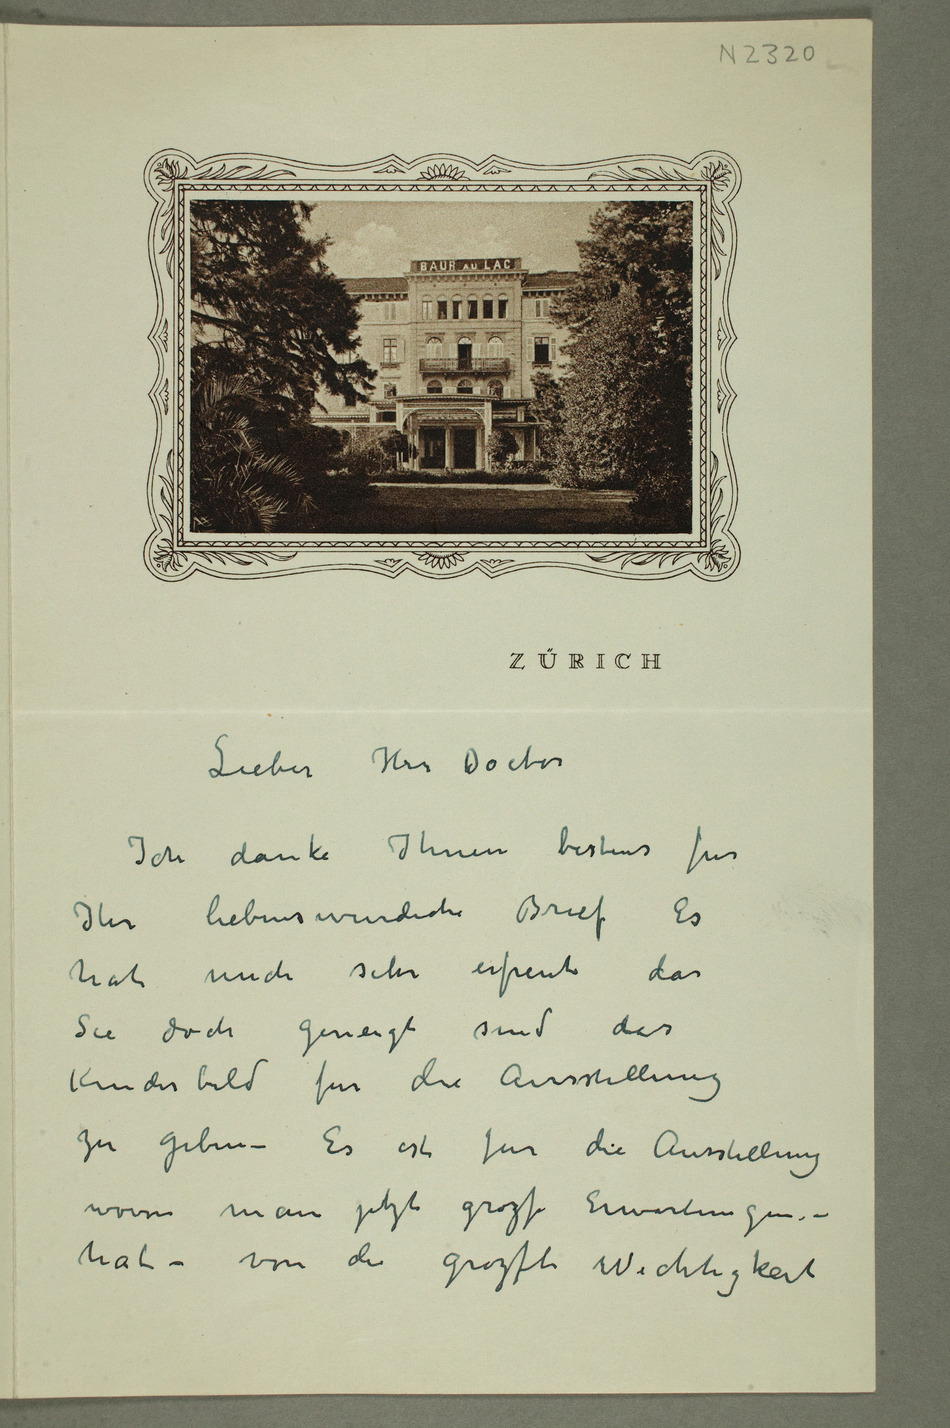 N2320
BAUR AU LAC
ZÜRICH
Lieber Herr Doctor
Ich danke Ihnen bestens fur
Ihr liebenswurdiche Brief Es
hat mich sehr erfreut das
Sie doch geneigt sind das
Kinderbild fur die Ausstellung
zu geben – Es ist fur die Ausstellung
wovon man jetzt grozse Erwartungen. –
hat – von die grozste Wichtigkeit